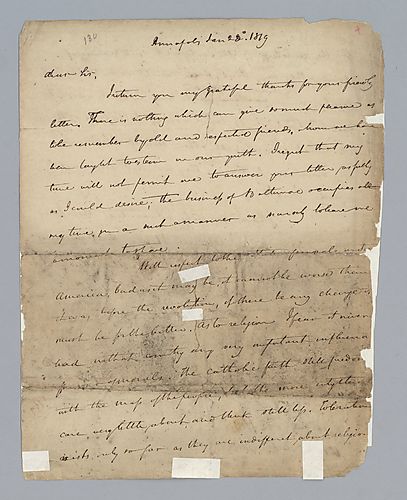 130
Annapolis Jan 28th. 1819
Dear Sir,
I return you my grateful thanks for your friendly
letter. There is nothing which can give so much pleasure as
to be remember by old and respected friends, whom we have
been taught to esteem in our youth. I regret that my
time will not permit me to answer your letter as fully
as I could desire; the business of Baltimore occupies all
my time, in a such a manner as scarcely to leave me
a moment to spare.
With respect to the state of in
America, bad as it may be, it cannot be worse than
it was before the revolution, if there be any change it
must be for the better. As to religion I fear it never
had in that country any very important influence
on morals. The Catholic faith still predom
with the mass of the people, but the more enlightened
care very little about and think still less. Toleration
exists only so far as they are indifferent about religion